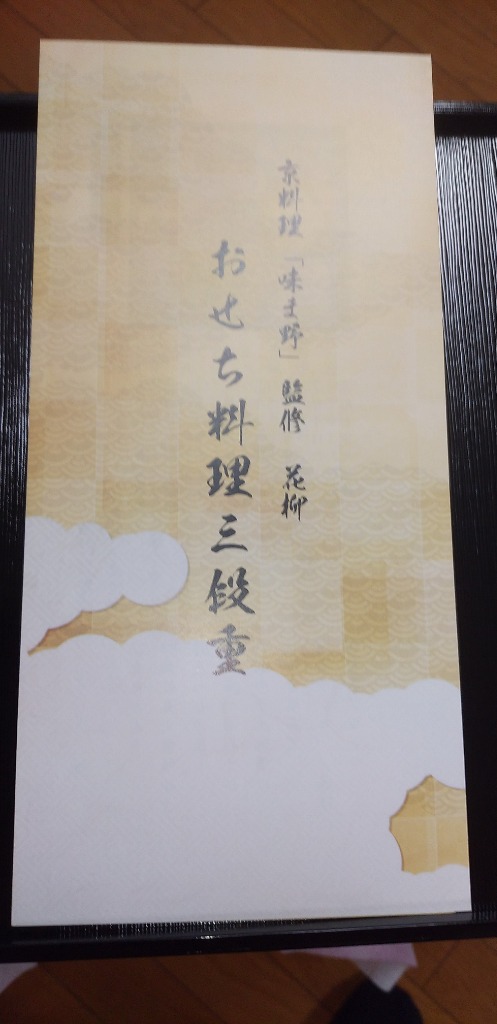 京料理「味ま野」監修　花柳
おせち料理三段重